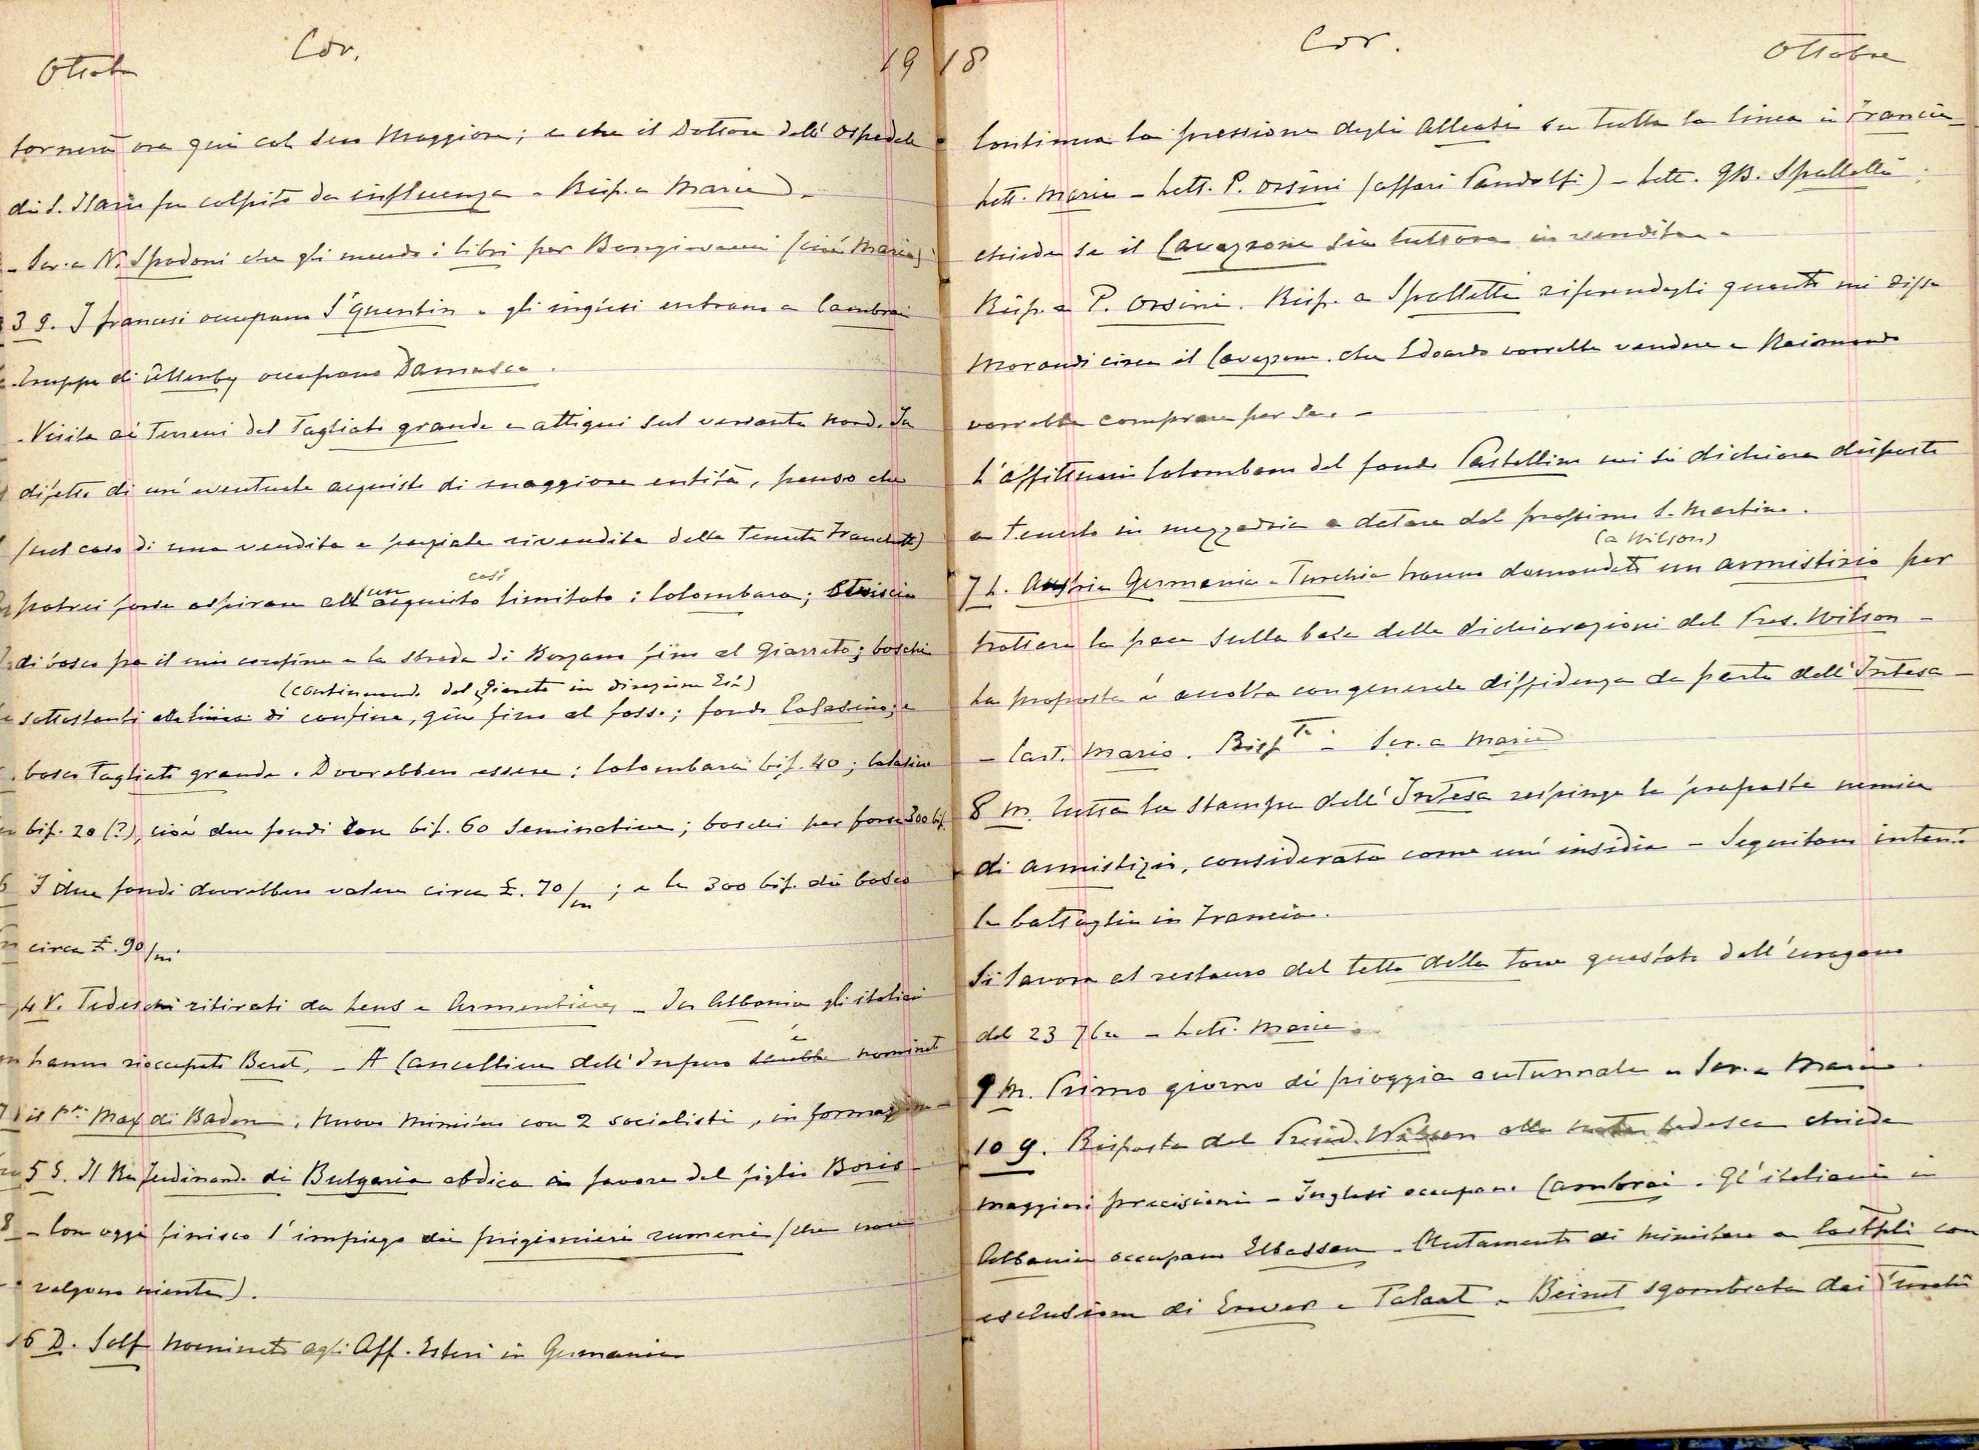 Ottob Cor. 19
tornerà ora qui col suo Maggiore; e che il Dottore dell' ospedale
di S. Ilario fu colpito da influenza - Risp. a Maria -
- Scr. a N. Spadoni che gli mando i libri per Bongiovanni (cioè Maria)
3 g. I francesi occupano S' Quentin e gli inglesi entrano a Cambrai
truppe di Allenby occupano Damasco.
- Visita ai terreni del Tagliato grande e attigui sul versante nord. In
difetto di un' eventuale acquisto di maggiore entità, penso che
(nel caso di una vendita e parziale rivendita della Tenuta Franchetti)
potrei forse aspirare all' un acquisto così limitato: Colombara; striscia
di bosco fra il mio confine e la strada di Borzano fino al Giarreto; boschi
(continuando dal Giareto in direzione Est)
sottostanti alla linea di confine, giù fino al fosso; fondo Casasino; e
bosco Tagliato grande. Dovrebbero essere: Colombara bif. 40; Casasino
bif. 20 (?), cioè due fondi con bif. 60 seminative; boschi per forse 300 bif.
I due fondi dovrebbero valere circa £. 70/m; e le 300 bif. di bosco
circa £. 90/m.
4 V. Tedeschi ritirati da Lens e Armentières - In Albania gli italiani
hanno rioccupato Berat. - A Cancelliere dell' Impero sarebbe è nominato
il P.pe Max di Baden. Nuovo Ministero con 2 socialisti, in formazione -
5 S. Il Re Ferdinando di Bulgaria abdica in favore del figlio Boris -
- Con oggi finisco l' impiego dei prigionieri rumeni (che non
valgono niente).
6 D. Solf nominato agli Aff. Esteri in Germania
18 Cor. Ottobre
Continua la pressione degli Alleati su tutta la linea in Francia -
Lett. Maria - Lett. P. Orsini (affari Pandolfi) - Lett. GB. Spalletti
chiede se il Cavazzone sia tuttora in vendita -
Risp. a P. Orsini. Risp. a Spalletti riferendogli quanto mi disse
Morandi circa il Cavazzone che Edoardo vorrebbe vendere e Raimondo
vorrebbe comprare per se. -
L' affittuario Colombara del fondo Castellino mi si dichiara disposto
a tenerlo in mezzadria a datare dal prossimo S. Martino.
(a Wilson)
7 L. Austria Germania e Turchia hanno domandato un armistizio per
trattare la pace sulla base delle dichiarazioni del Pres. Wilson -
La proposta è accolta con generale diffidenza da parte dell' Intesa -
- Cart. Mario. Risp.ta - Scr. a Maria
8 M. Tutta la stampa dell' Intesa respinge la proposta nemica
di armistizio, considerata come un' insidia - Seguitano intanto
la battaglia in Francia.
Si lavora al restauro del tetto della torre guastato dall' uragano
del 23 7bre - Lett. Maria.
9 M. Primo giorno di pioggia autunnale - Scr. a Maria.
10 g. Risposta del Presid. Wilson alla nota tedesca chiede
maggiori precisioni - Inglesi occupano Cambrai. Gl' italiani in
Albania occupano Elbassan - Mutamento di ministero a Cost.pli con
esclusione di Enver e Talaat - Beirut sgombrata dai Turchi